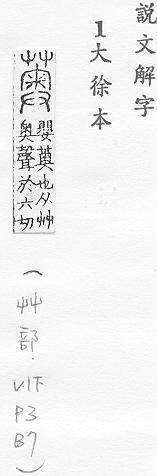 説文解字
1大徐本
薁
嬰薁也从艸
奧聲於六切
(艸部. V1下 P3 B7)